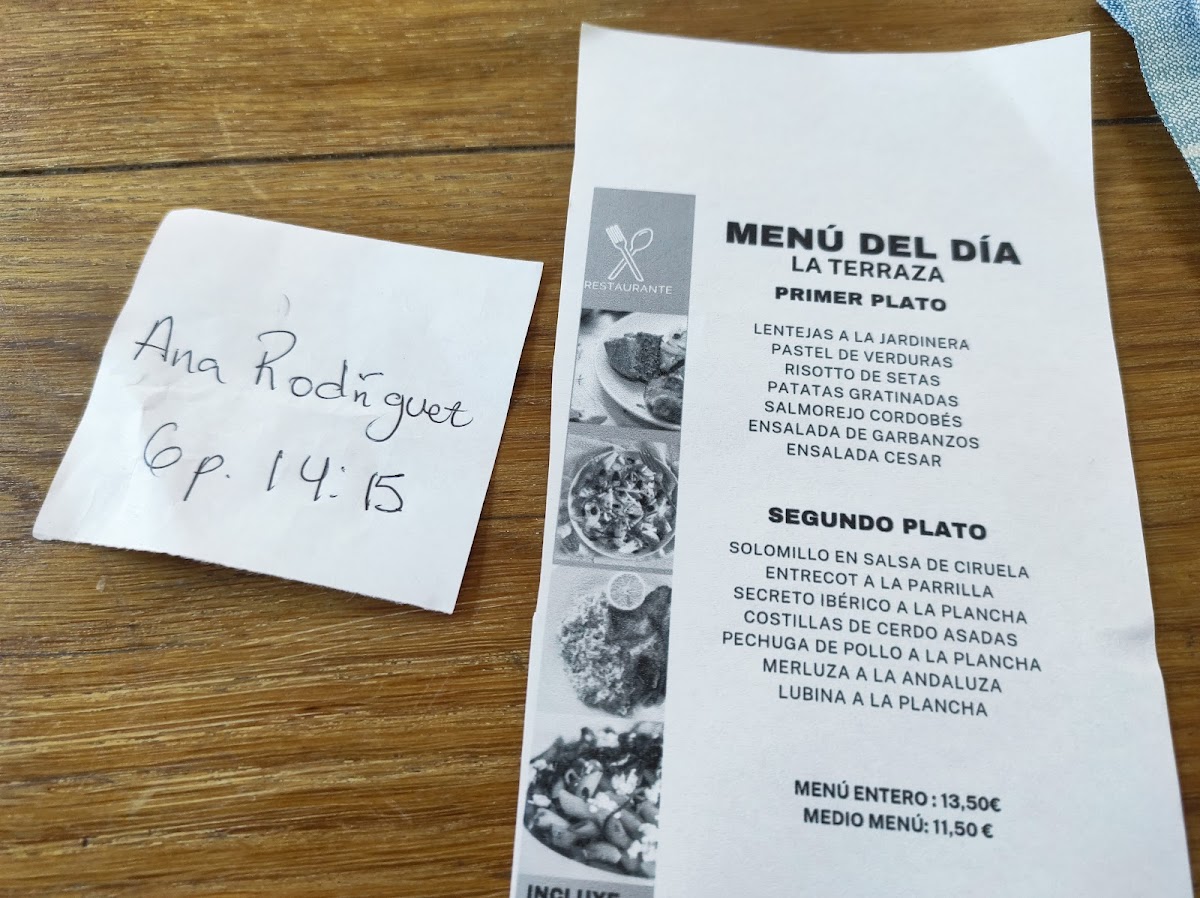 Ana Rodríguez
6 p. 14:15
RESTAURANTE
MENÚ DEL DÍA
LA TERRAZA
PRIMER PLATO
LENTEJAS A LA JARDINERA
PASTEL DE VERDURAS
RISOTTO DE SETAS
PATATAS GRATINADAS
SALMOREJO CORDOBÉS
ENSALADA DE GARBANZOS
ENSALADA CESAR
SEGUNDO PLATO
SOLOMILLO EN SALSA DE CIRUELA
ENTRECOT A LA PARRILLA
SECRETO IBÉRICO A LA PLANCHA
COSTILLAS DE CERDO ASADAS
PECHUGA DE POLLO A LA PLANCHA
MERLUZA A LA ANDALUZA
LUBINA A LA PLANCHA
MENÚ ENTERO : 13,50€
MEDIO MENÚ: 11,50 €
INCLUYE